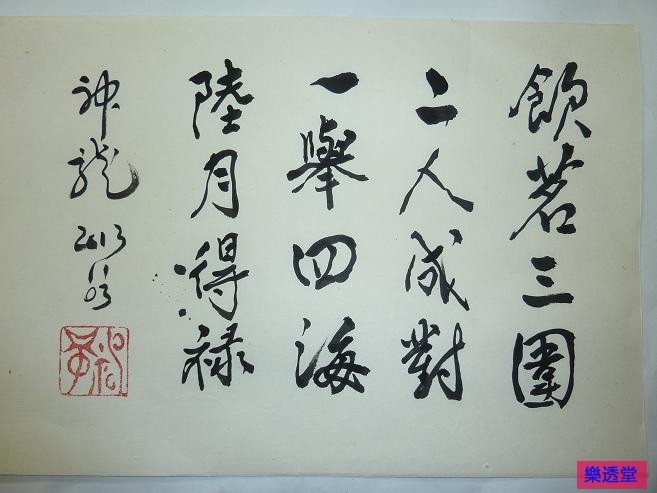 飲茗三圍
二人成對
一舉四海
陸月得祿
神龍
2013
11/03
樂透堂